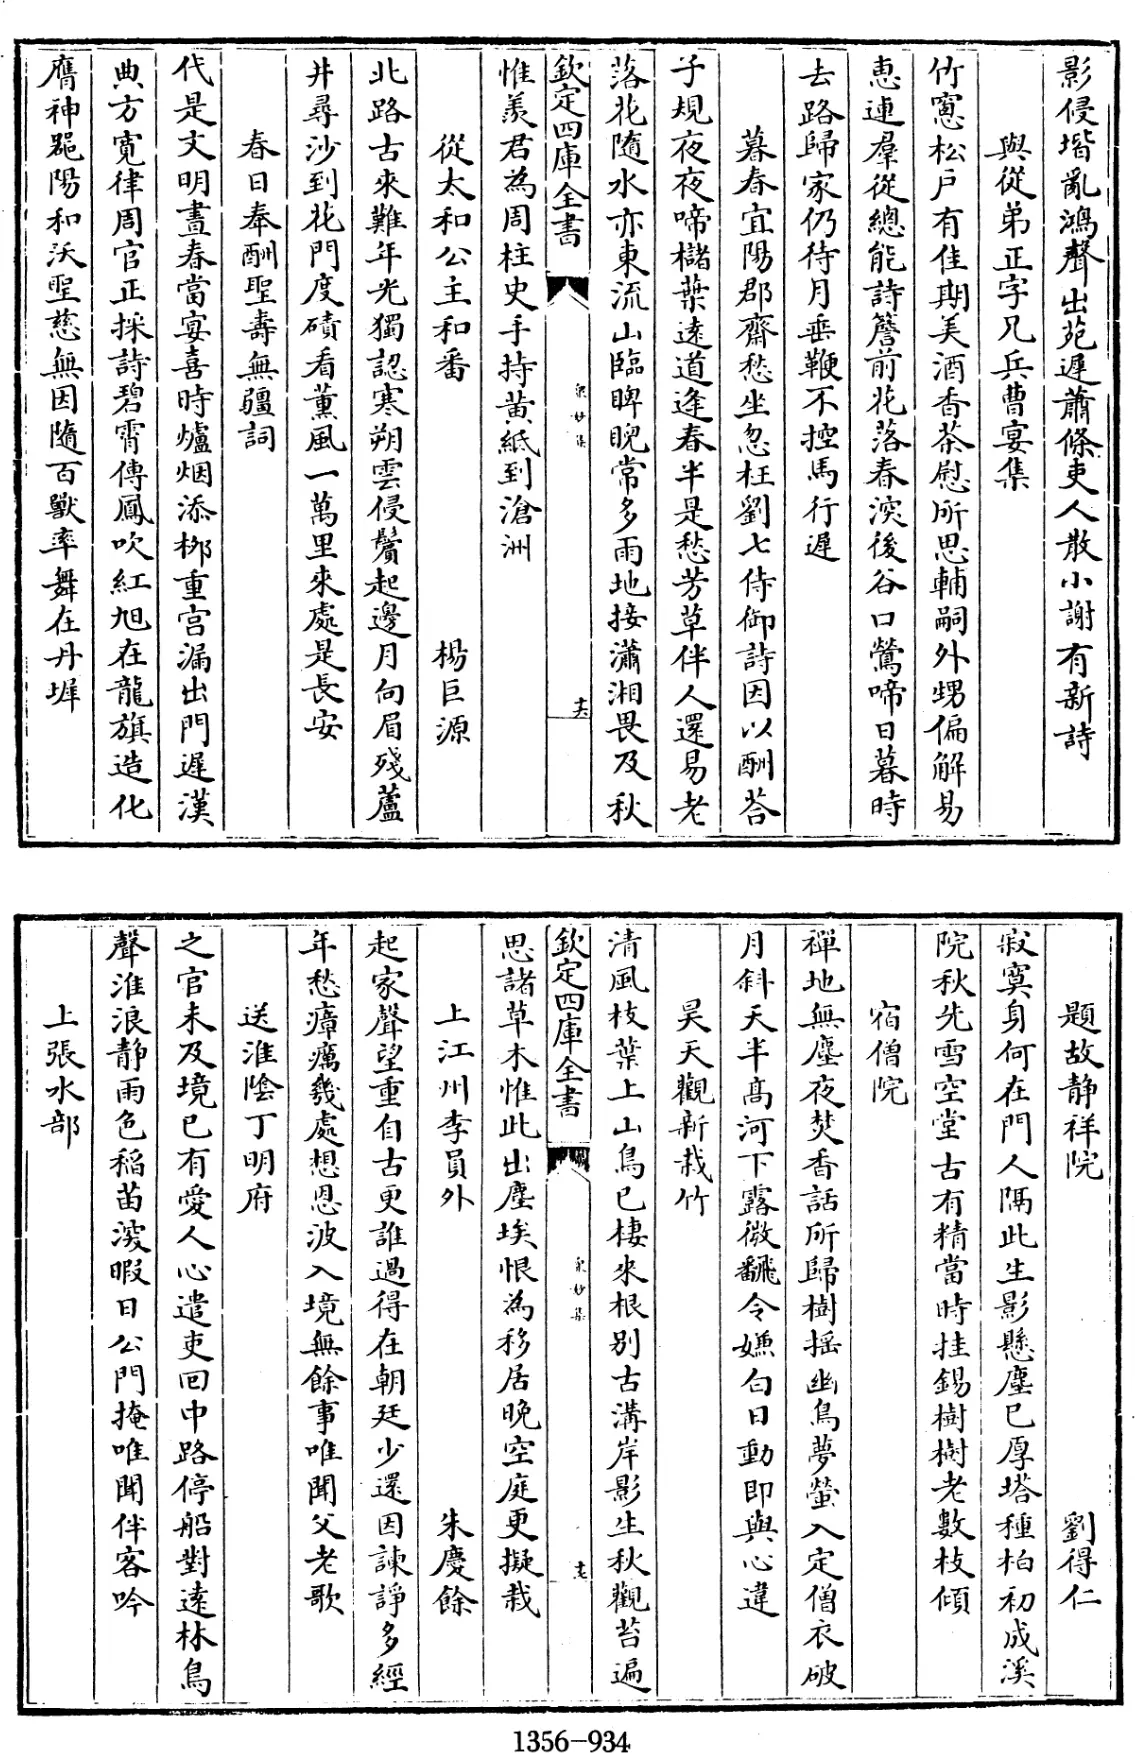 影侵堦亂鴻聲出苑遲蕭條吏人散小謝有新詩
與從弟正字兄兵曹宴集
竹窻松戸有佳期美酒香茶慰所思輔嗣外甥偏解易
惠連羣從總能詩簷前花落春深後谷口鶯啼日暮時
去路歸家仍待月垂鞭不控馬行遲
暮春宜陽郡齋愁坐忽枉劉七侍御詩因以酬荅
子規夜夜啼櫧葉逺道逢春半是愁芳草伴人還易老
落花隨水亦東流山臨睥睨常多雨地接瀟湘畏及秋
欽定四庫全書
衆妙集
十六
惟羨君為周柱史手持黄紙到滄洲
從太和公主和番 楊巨源
北路古來難年光獨認寒朔雲侵鬢起邊月向眉殘蘆
井尋沙到花門度磧看薫風一萬里來處是長安
春日奉酬聖壽無疆詞
代是文明晝春當宴喜時爐烟添栁重宫漏出門遲漢
典方寛律周官正採詩碧霄傳鳳吹紅旭在龍旗造化
膺神器陽和沃聖慈無因隨百獸率舞在丹墀
題故静祥院 劉得仁
寂寞身何在門人隔此生影懸塵已厚塔種柏初成溪
院秋先雪空堂古有精當時挂錫樹樹老數枝傾
宿僧院
禪地無塵夜焚香話所歸樹揺幽鳥夢螢入定僧衣破
月斜天半髙河下露微飜令嫌白日動即與心違
昊天觀新栽竹
清風枝葉上山鳥已棲來根别古溝岸影生秋觀苔遍
欽定四庫全書
衆妙集
十七
思諸草木惟此出塵埃恨為移居晩空庭更擬栽
上江州李員外 朱慶餘
起家聲望重自古更誰過得在朝廷少還因諫諍多經
年愁瘴癘幾處想恩波入境無餘事唯聞父老歌
送淮隂丁明府
之官未及境已有愛人心遣吏回中路停船對逺林鳥
聲淮浪静雨色稻苗深暇日公門掩唯聞伴客吟
上張水部
1356-934